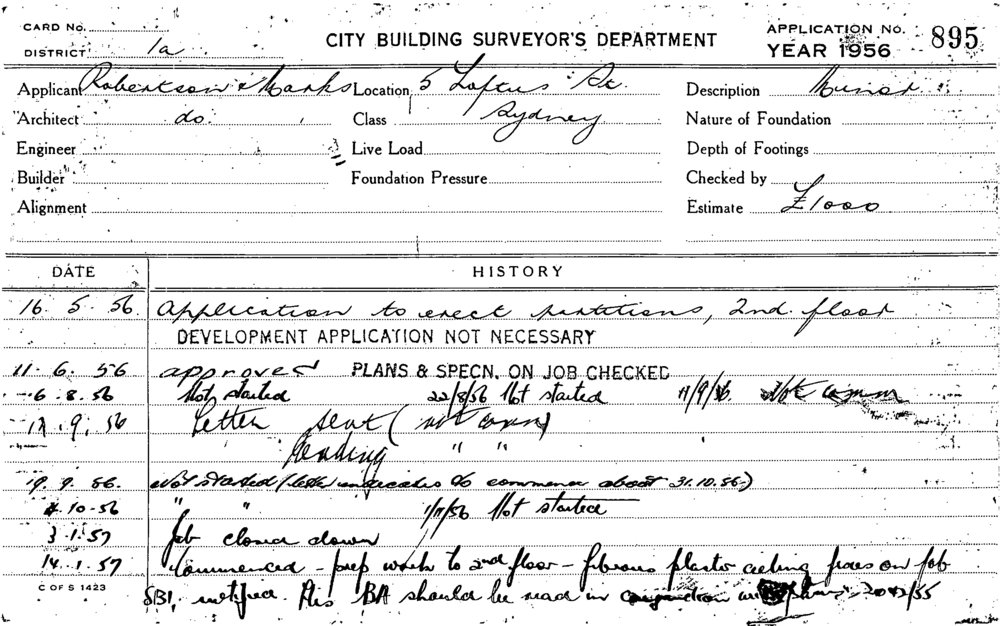 CARD No.
DISTRICT 1a
CITY BUILDING SURVEYOR'S DEPARTMENT
APPLICATION No. 895
YEAR 1956
Applicant Robertson & Marks Location 5 Loftus St. Description Minor
Architect do. Class Sydney Nature of Foundation
Engineer Live Load Depth of Footings
Builder Foundation Pressure Checked by
Alignment Estimate £1000
DATE HISTORY
16. 5. 56 Application to erect partitions, 2nd. floor
DEVELOPMENT APPLICATION NOT NECESSARY
11. 6. 56 approved PLANS & SPECN. ON JOB CHECKED
6. 8. 56 Not started 22/8/56 Not started 11/9/56. Not comm
9. 56 Letter sent (not comm)
Pending " "
19. 9. 56. Not started (letter indicates to commence about 31.10.56.)
10-56 " " 1/11/56 Not started
3.1.57 Job closed down
14.1.57 Commenced - prep work to 2nd floor - fibrous plaster ceiling on job
C OF S 1423
SBI, notified. This BA should be read in conjunction
895